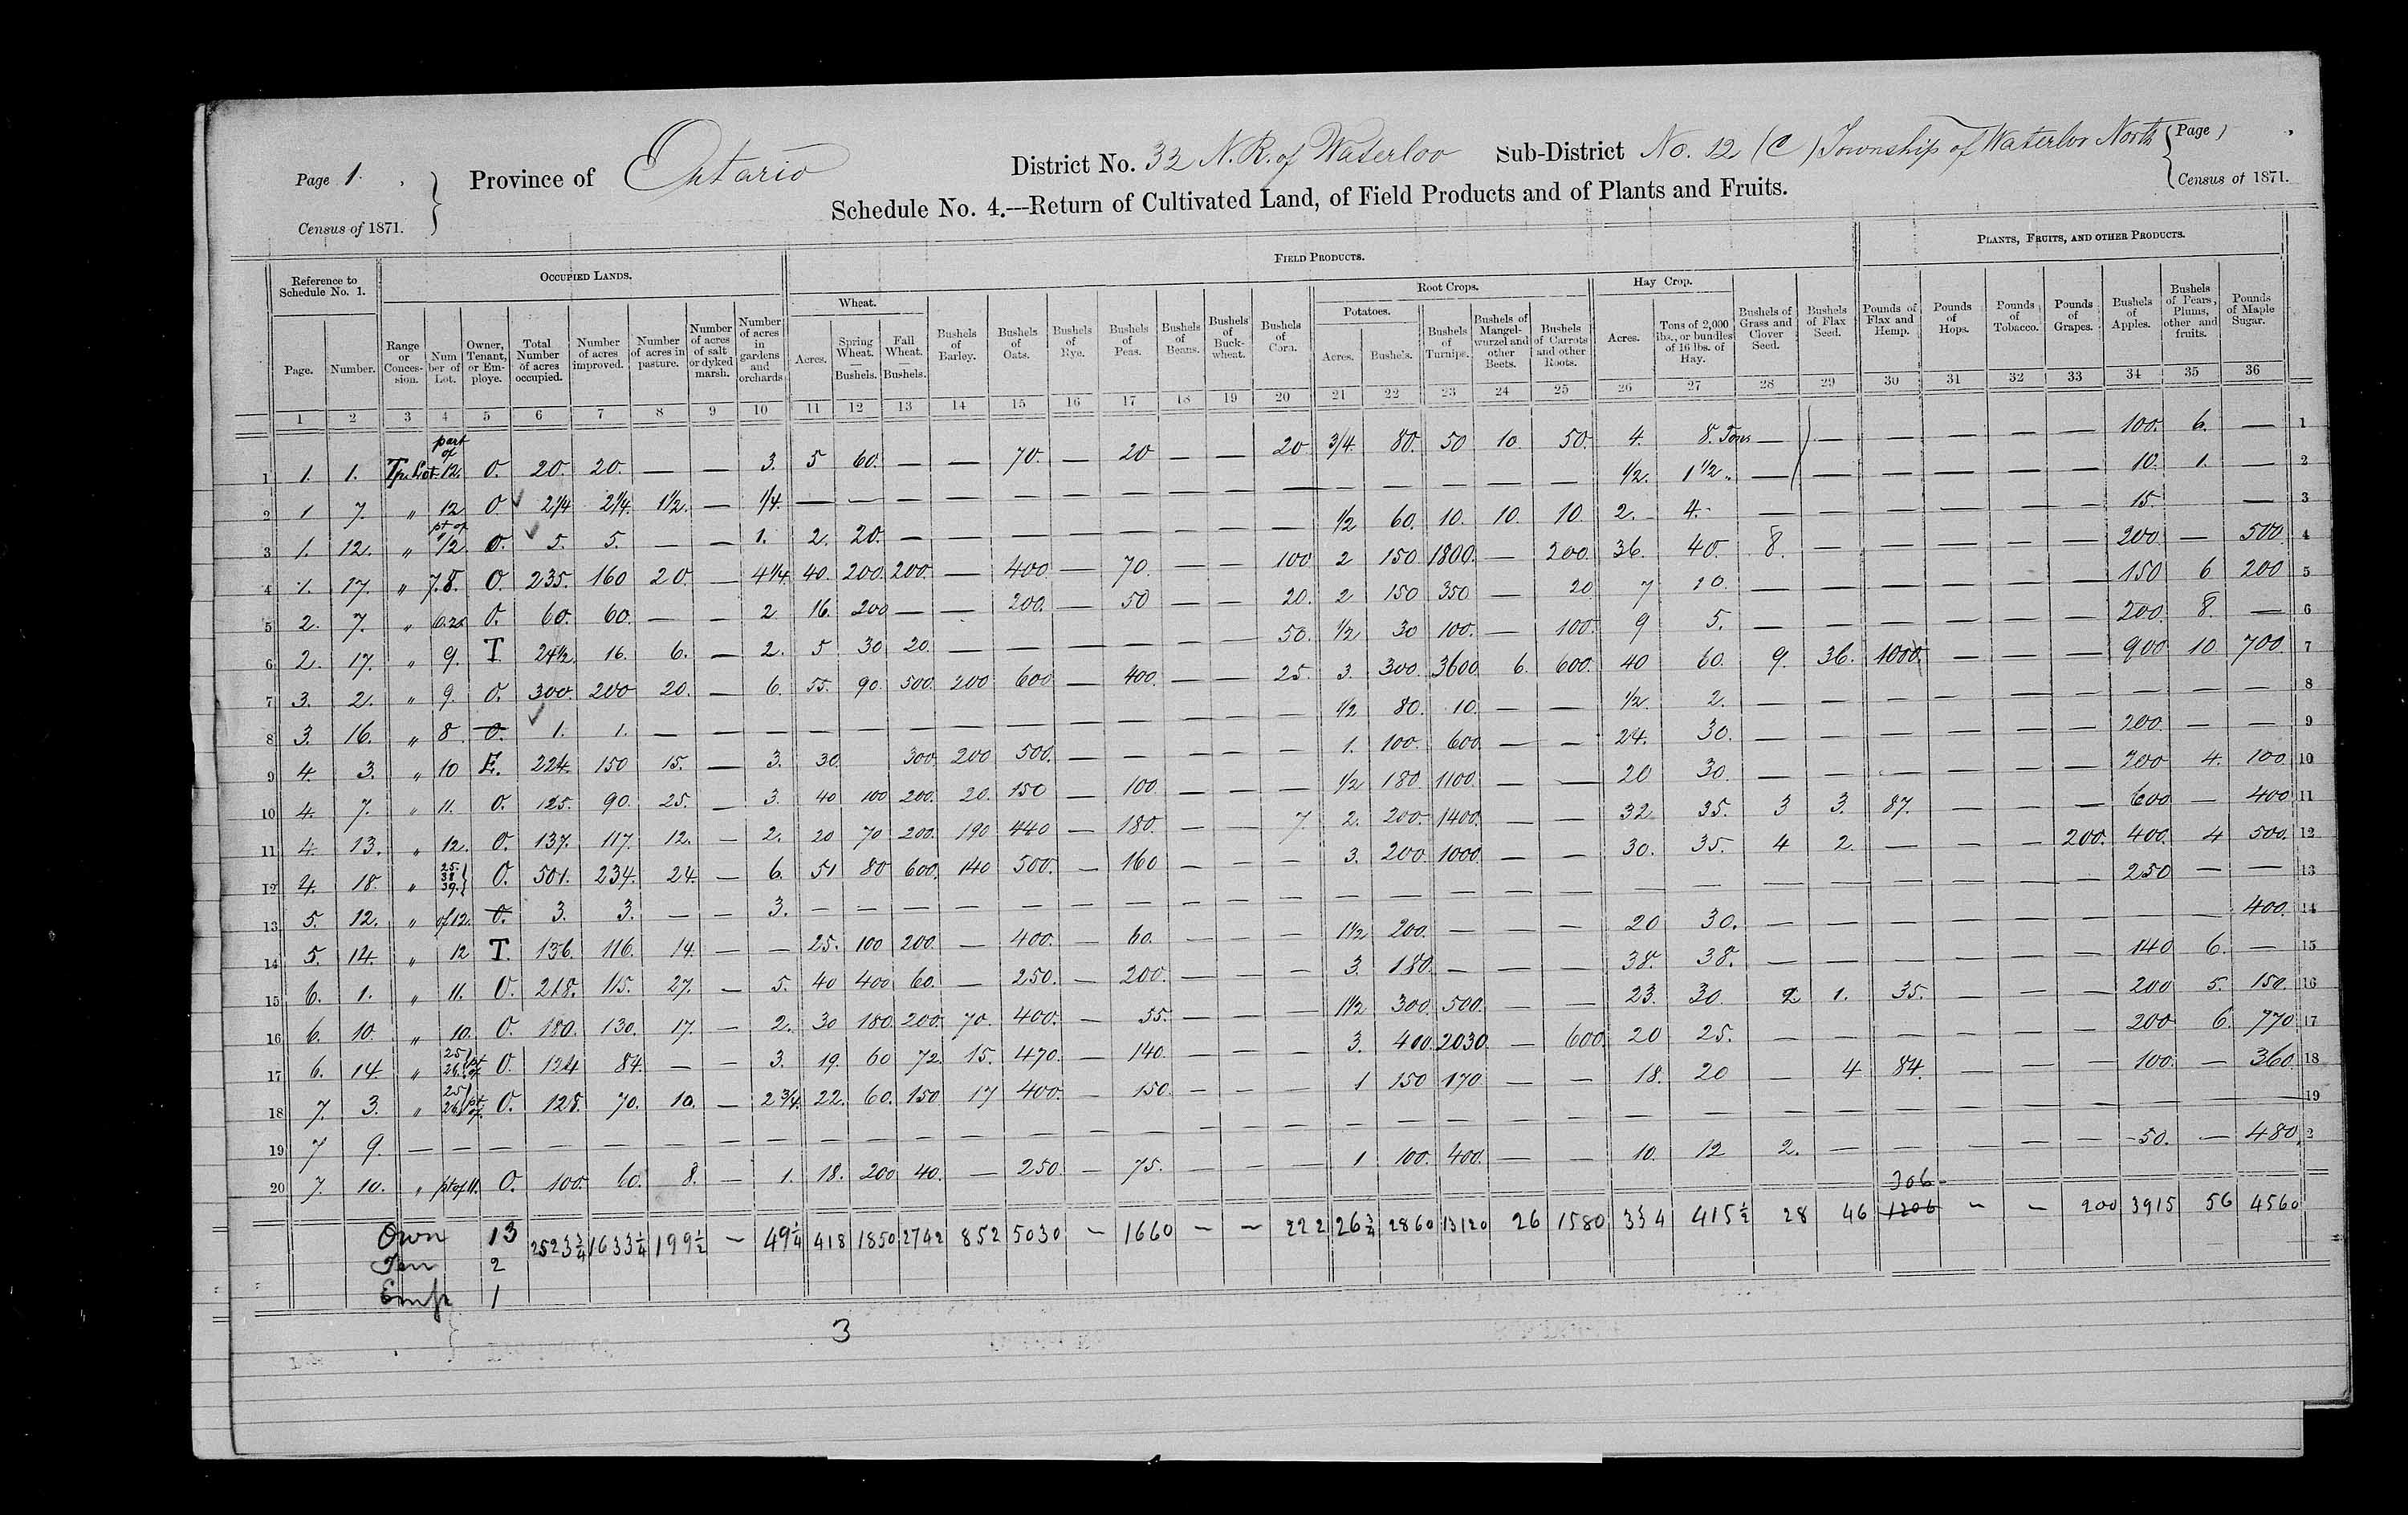 Page 1. Province of Ontario District No. 32 N. R. of Waterloo Sub-District No. 12 (C) Township of Waterloo North Page 1
Census of 1871. Schedule No. 4.---Return of Cultivated Land, of Field Products and of Plants and Fruits. Census of 1871.
Reference to Schedule No. 1. OCCUPIED LANDS. FIELD PRODUCTS. PLANTS, FRUITS, AND OTHER PRODUCTS.
Wheat. Root Crops. Potatoes. Hay Crop.
Page. Number. Range or Conces- sion. Num ber of Lot. Owner, Tenant, or Em- ploye. Total Number of acres occupied. Number of acres improved. Number of acres in pasture. Number of acres of salt or dyked marsh. Number of acres in gardens and orchards Acres. Spring Wheat. — Bushels. Fall Wheat. Bushels. Bushels of Barley. Bushels of Oats. Bushels of Rye. Bushels of Peas. Bushels of Beans. Bushels of Buck- wheat. Bushels of Corn. Acres. Bushels. Bushels of Turnips. Bushels of Mangel- wurzel and other Beets. Bushels of Carrots and other Roots. Acres. Tons of 2,000 lbs., or bundles of 16 lbs. of Hay. Bushels of Grass and Clover Seed. Bushels of Flax Seed. Pounds of Flax and Hemp. Pounds of Hops. Pounds of Tobacco. Pounds of Grapes. Bushels of Apples. Bushels of Pears, Plums, other and fruits. Pounds of Maple Sugar.
1 2 3 4 5 6 7 8 9 10 11 12 13 14 15 16 17 18 19 20 21 22 23 24 25 26 27 28 29 30 31 32 33 34 35 36
1 1. 1. Tp. Lot part of 12. O. 20. 20. — — 3. 5 60. — — 70. — 20 — — 20 3/4. 80. 50 10. 50. 4. 8. Tons — — — — — — 100. 6. — 1
2 1 7. " 12 O. 2 1/4 2 1/4. 1 1/2. — 1/4. — — — — — — — — — — — — — — — 1/2. 1 1/2 " — — — — — — 10. 1. — 2
3 1. 12. " pt of 12 O. 5. 5. — — 1. 2. 20. — — — — — — — — 1/2 60. 10. 10. 10. 2. 4. — — — — — — 15. — 3
4 1. 17. " 7.8. O. 235. 160 20. — 4 1/4. 40. 200. 200. — 400 — 70. — — 100 2 150 1800. — 200. 36. 40. 8. — — — — — 200. — 500. 4
5 2. 7. " O. 60. 60. — — 2. 16. 200 — — 200. — 50 — — 20. 2 150 350 — 20 7 10. — — — — — — 150 6 200 5
6 2. 17. " 9. T. 24 1/2. 16. 6. — 2. 5 30 20. — — — — — — 50. 1/2 30 100. — 100. 9 5. — — — — — — 200. 8. — 6
7 3. 2. " 9. O. 300. 200 20. — 6. 55. 90. 500. 200 600 — 400. — — 25. 3. 300. 3600 6. 600. 40 60. 9. 36. 1000. — — — 900 10 700. 7
8 3. 16. " 8. O. 1. 1. — — — — — — — — — — — — — 1/2 80. 10. — — 1/2. 2. — — — — — — — — — 8
9 4. 3. " 10 E. 224. 150 15. — 3. 30. 300. 200 500. — — — — — 1. 100. 600 — — 24. 30. — — — — — — 200. — — 9
10 4. 7. " 11. O. 125. 90. 25. — 3. 40 100 200. 20. 150 — 100 — — — 1/2 180. 1100. — — 20 30. — — — — — — 200 4. 100 10
11 4. 13. " 12. O. 137. 117. 12. — 2. 20 70 200. 190 440 — 180. — — 7. 2. 200. 1400. — — 32. 35. 3 3. 87. — — — 600. — 400 11
12 4. 18. " 25. 38 39. O. 501. 234. 24. — 6. 51 80 600. 140 500. — 160 — — — 3. 200. 1000. — — 30. 35. 4 2. — — — 200. 400. 4 500. 12
13 5. 12. " of 12. O. 3. 3. — — 3. — — — — — — — — — — — — — — — — — — — — — — — 250 — — 13
14 5. 14. " 12 T. 136. 116. 14. — — 25. 100 200. — 400. — 60. — — — 1 1/2 200. — — — 20 30. — — — — — — — — 400. 14
15 6. 1. " 11. O. 218. 115. 27. — 5. 40 400 60. — 250. — 200. — — — 3. 180. — — — 38. 38. — — — — — — 140 6. — 15
16 6. 10. " 10. O. 180. 130. 17. — 2. 30 180. 200. 70. 400. — 55. — — — 1 1/2 300. 500. — — 23. 30. 2 1. 35. — — — 200 5. 150. 16
17 6. 14. " 25 26. pt of O. 124 84. — — 3. 19. 60 72. 15. 470. — 140. — — — 3. 400. 2030. — 600. 20 25. — — — — — — 200 6. 770. 17
18 7. 3. " 25 26. pt of O. 128. 70. 10. — 2 3/4. 22. 60. 150. 17 400. — 150. — — — 1 150 170 — — 18. 20 — 4 84. — — — 100. — 360. 18
19 7 9. — — — — — — — — — — — — — — — — — — — — — — — — — — — — — — — — — — 19
20 7. 10. " pt of 11. O. 100. 60. 8. — 1. 18. 200 40. — 250. — 75. — — — 1 100. 400. — — 10. 12 2. — — — — — 50. — 480. 2
306
Own 13 2523 3/4 1633 1/4 199 1/2 — 49 1/4 418 1850 2742 852 5030 — 1660 — — 222 26 3/4 2860 13120 26 1580 334 415 1/2 28 46 1206 — — 200 3915 56 4560
Ten 2
Emp 1
3